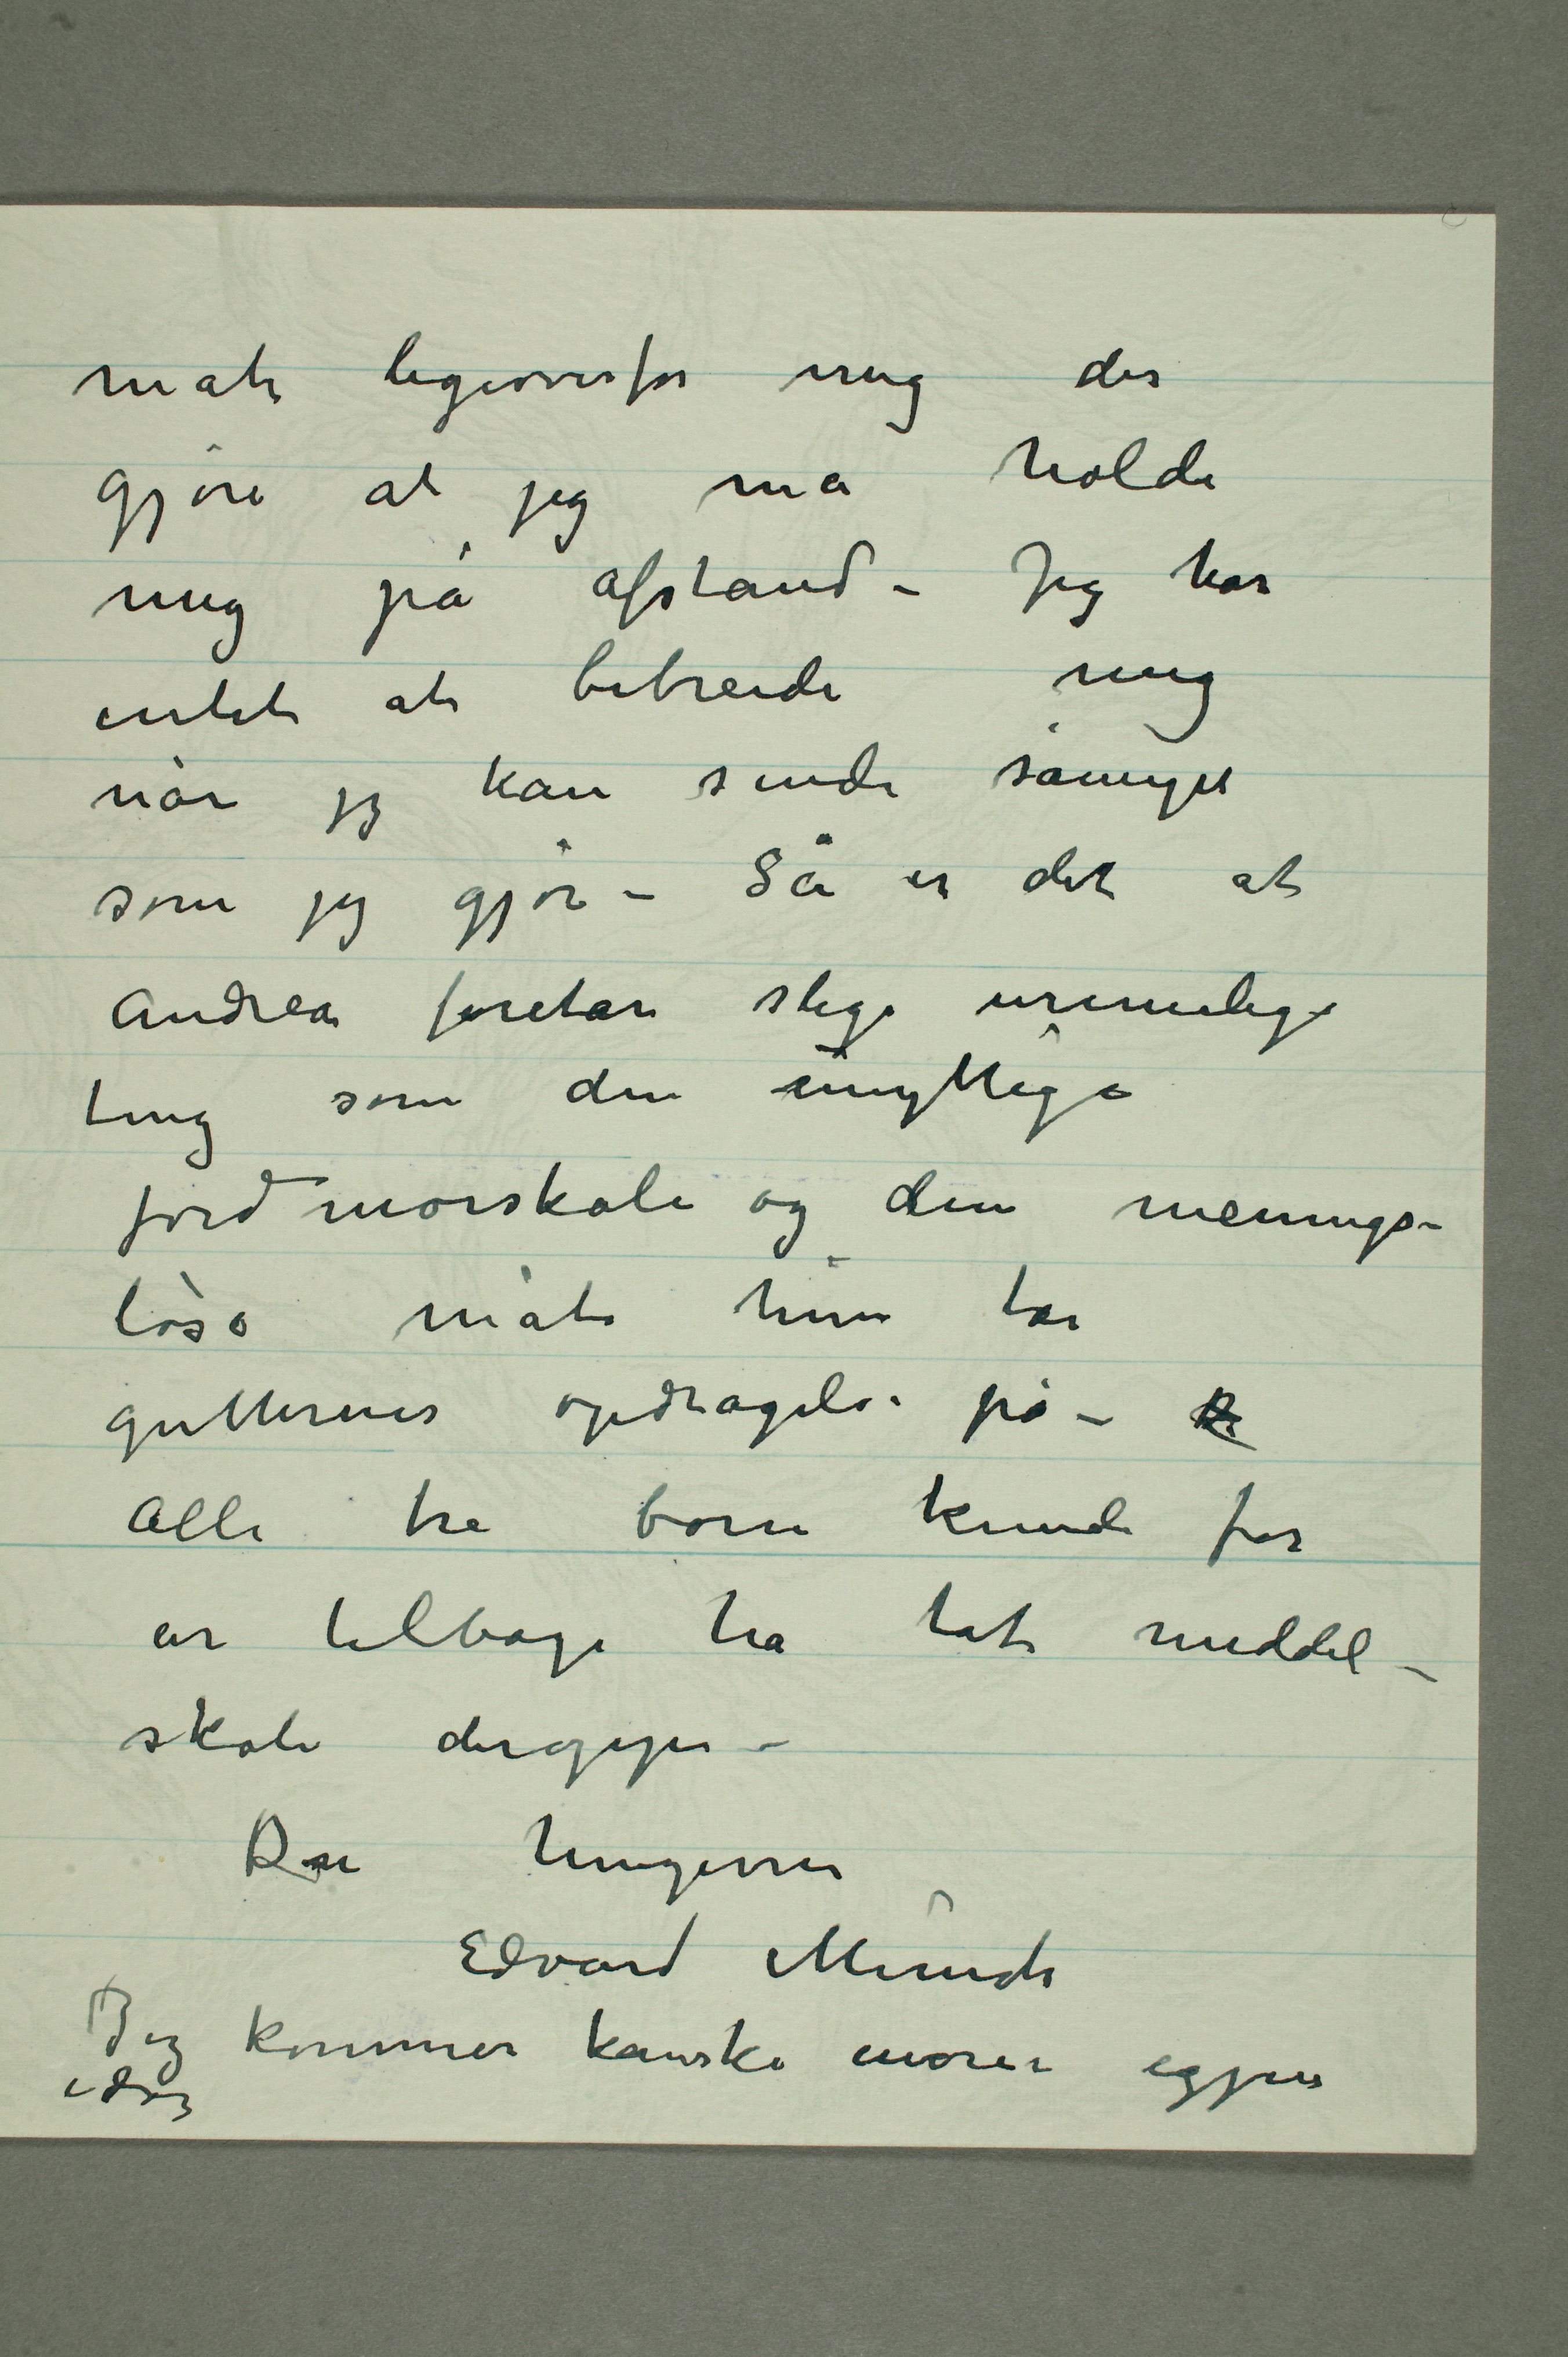 måte ligeoverfor mig der
gjøre at jeg må holde
mig på afstand – Jeg har
intet at bebreide mig
når jeg kan sende såmeget
som jeg gjør – Så er det at
Andrea foretar slige urimelige
ting som den unyttige
jordmorskole og den menings-
løse måte hun tar
gutternes opdragelse på –
Alle tre børn kunde for
år tilbage ha tat middel-
skole deroppe –
Din hengivne
Edvard Munch
Jeg kommer kanske indover igjen
idag